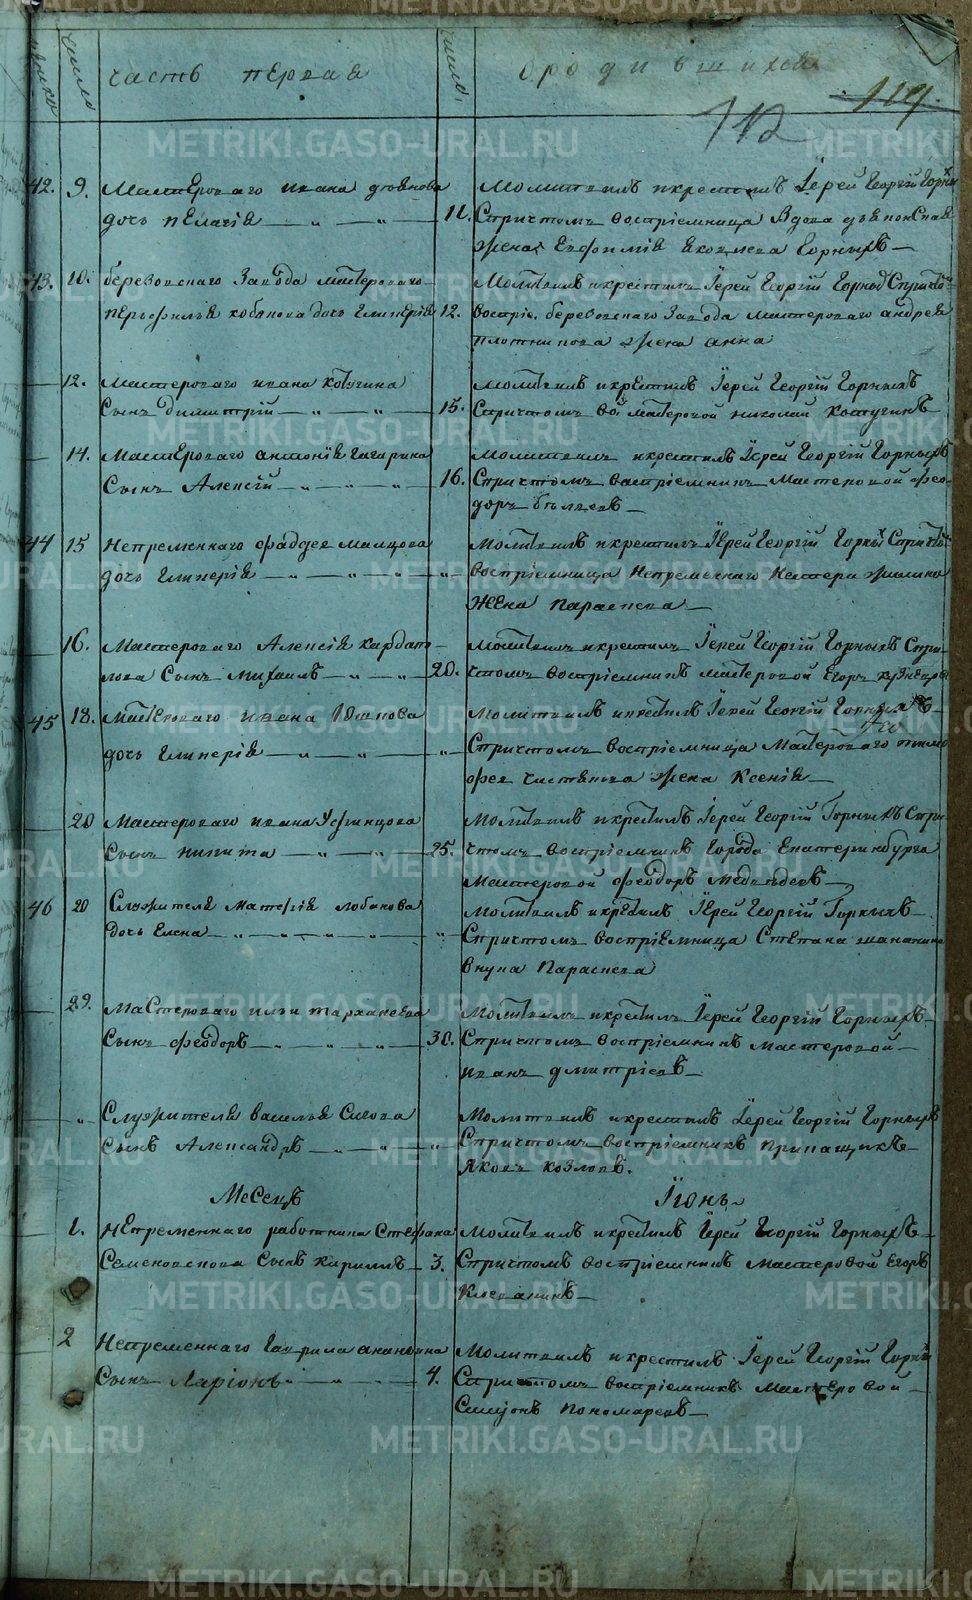 число
число
часть первая
о родившихся
119.
112
42. 9. Мастероваго ивана
дочь пелагія
11.
Молитвилъ икрестилъ Іерей Георгій Горныхъ
Спричтомъ воспріемница Вдова
жена Евфимія яковлева Горныхъ
43. 10. березовскаго Завода мастероваго
перьфилья кобякова дочь гликерія 12.
Молитвилъ икрестилъ Іерей Георгій Горныхъ Спричто
воспріе. березовскаго Завода мастероваго андрея
плотникова жена анна
12. Мастероваго ивана котугина
Сынъ димитрій
15.
молитвилъ икрестилъ Іерей Георгій Горныхъ
Спричтомъ вос мастеровой николай котугинъ
14. Мастероваго антонія гагарина
Сынъ Алексій
16.
Молитвилъ икрестилъ Іерей Георгій Горныхъ
Спричтомъ воспріемникъ Мастеровой фео
доръ бѣляевъ
44 15 Непременнаго фаддея мальцова
дочь гликерія
Молитвилъ икрестилъ Іерей Георгій Горных Спричто
воспріемница Непременнаго
жена параскева
16. Мастероваго Алексія
лова Сынъ михаилъ
20.
Молитвилъ икрестилъ Іерей Георгій Горныхъ Спри
чтомъ воспріемникъ мастеровой Егоръ кузнецовъ
45 18. Мастероваго ивана Юшкова
дочь гликерія
Молитвилъ икрестилъ Іерей Георгій Горныхъ
Спричтомъ воспріемница Мастероваго тимо
фея чистякова жена Ксенія
20 Мастероваго ивана Уфинцова
Сынъ никита
25.
Молитвилъ икрестилъ Іерей Георгій Горныхъ Спри
чтомъ воспріемникъ Города Екатеринбурга
Мастеровой феодоръ медведевъ
46 20 Служителя матфея лобанова
дочь елена
Молитвилъ икрестилъ Іерей Георгій Горныхъ
Спричтомъ воспріемница Стефана
внука Параскева
29. Мастероваго ильи тарханеева
Сынъ феодоръ
30.
Молитвилъ икрестилъ Іерей Георгій Горныхъ
Спричтомъ воспріемникъ мастеровой
иванъ дмитріевъ
Служителя василья Сигова
Сынъ Александръ
Молитвилъ икрестилъ Іерей Георгій Горныхъ
Спричтомъ воспріемникъ прикащикъ
яковъ козловъ.
Месецъ Іюнь
1. непременнаго работника Стефана
Семеновскова Сынъ кирилъ 3.
Молитвилъ икрестилъ Іерей Георгій Горныхъ
Спричтомъ воспріемникъ мастеровой Егоръ
клевакинъ
2 Непременнаго гаврила ананьина
Сынъ Ларіонъ
4.
Молитвилъ икрестилъ Іерей Георгій Горных
Спричтомъ воспріемникъ мастеровой
Симіонъ пономаревъ
METRIKI.GASO-URAL.RU